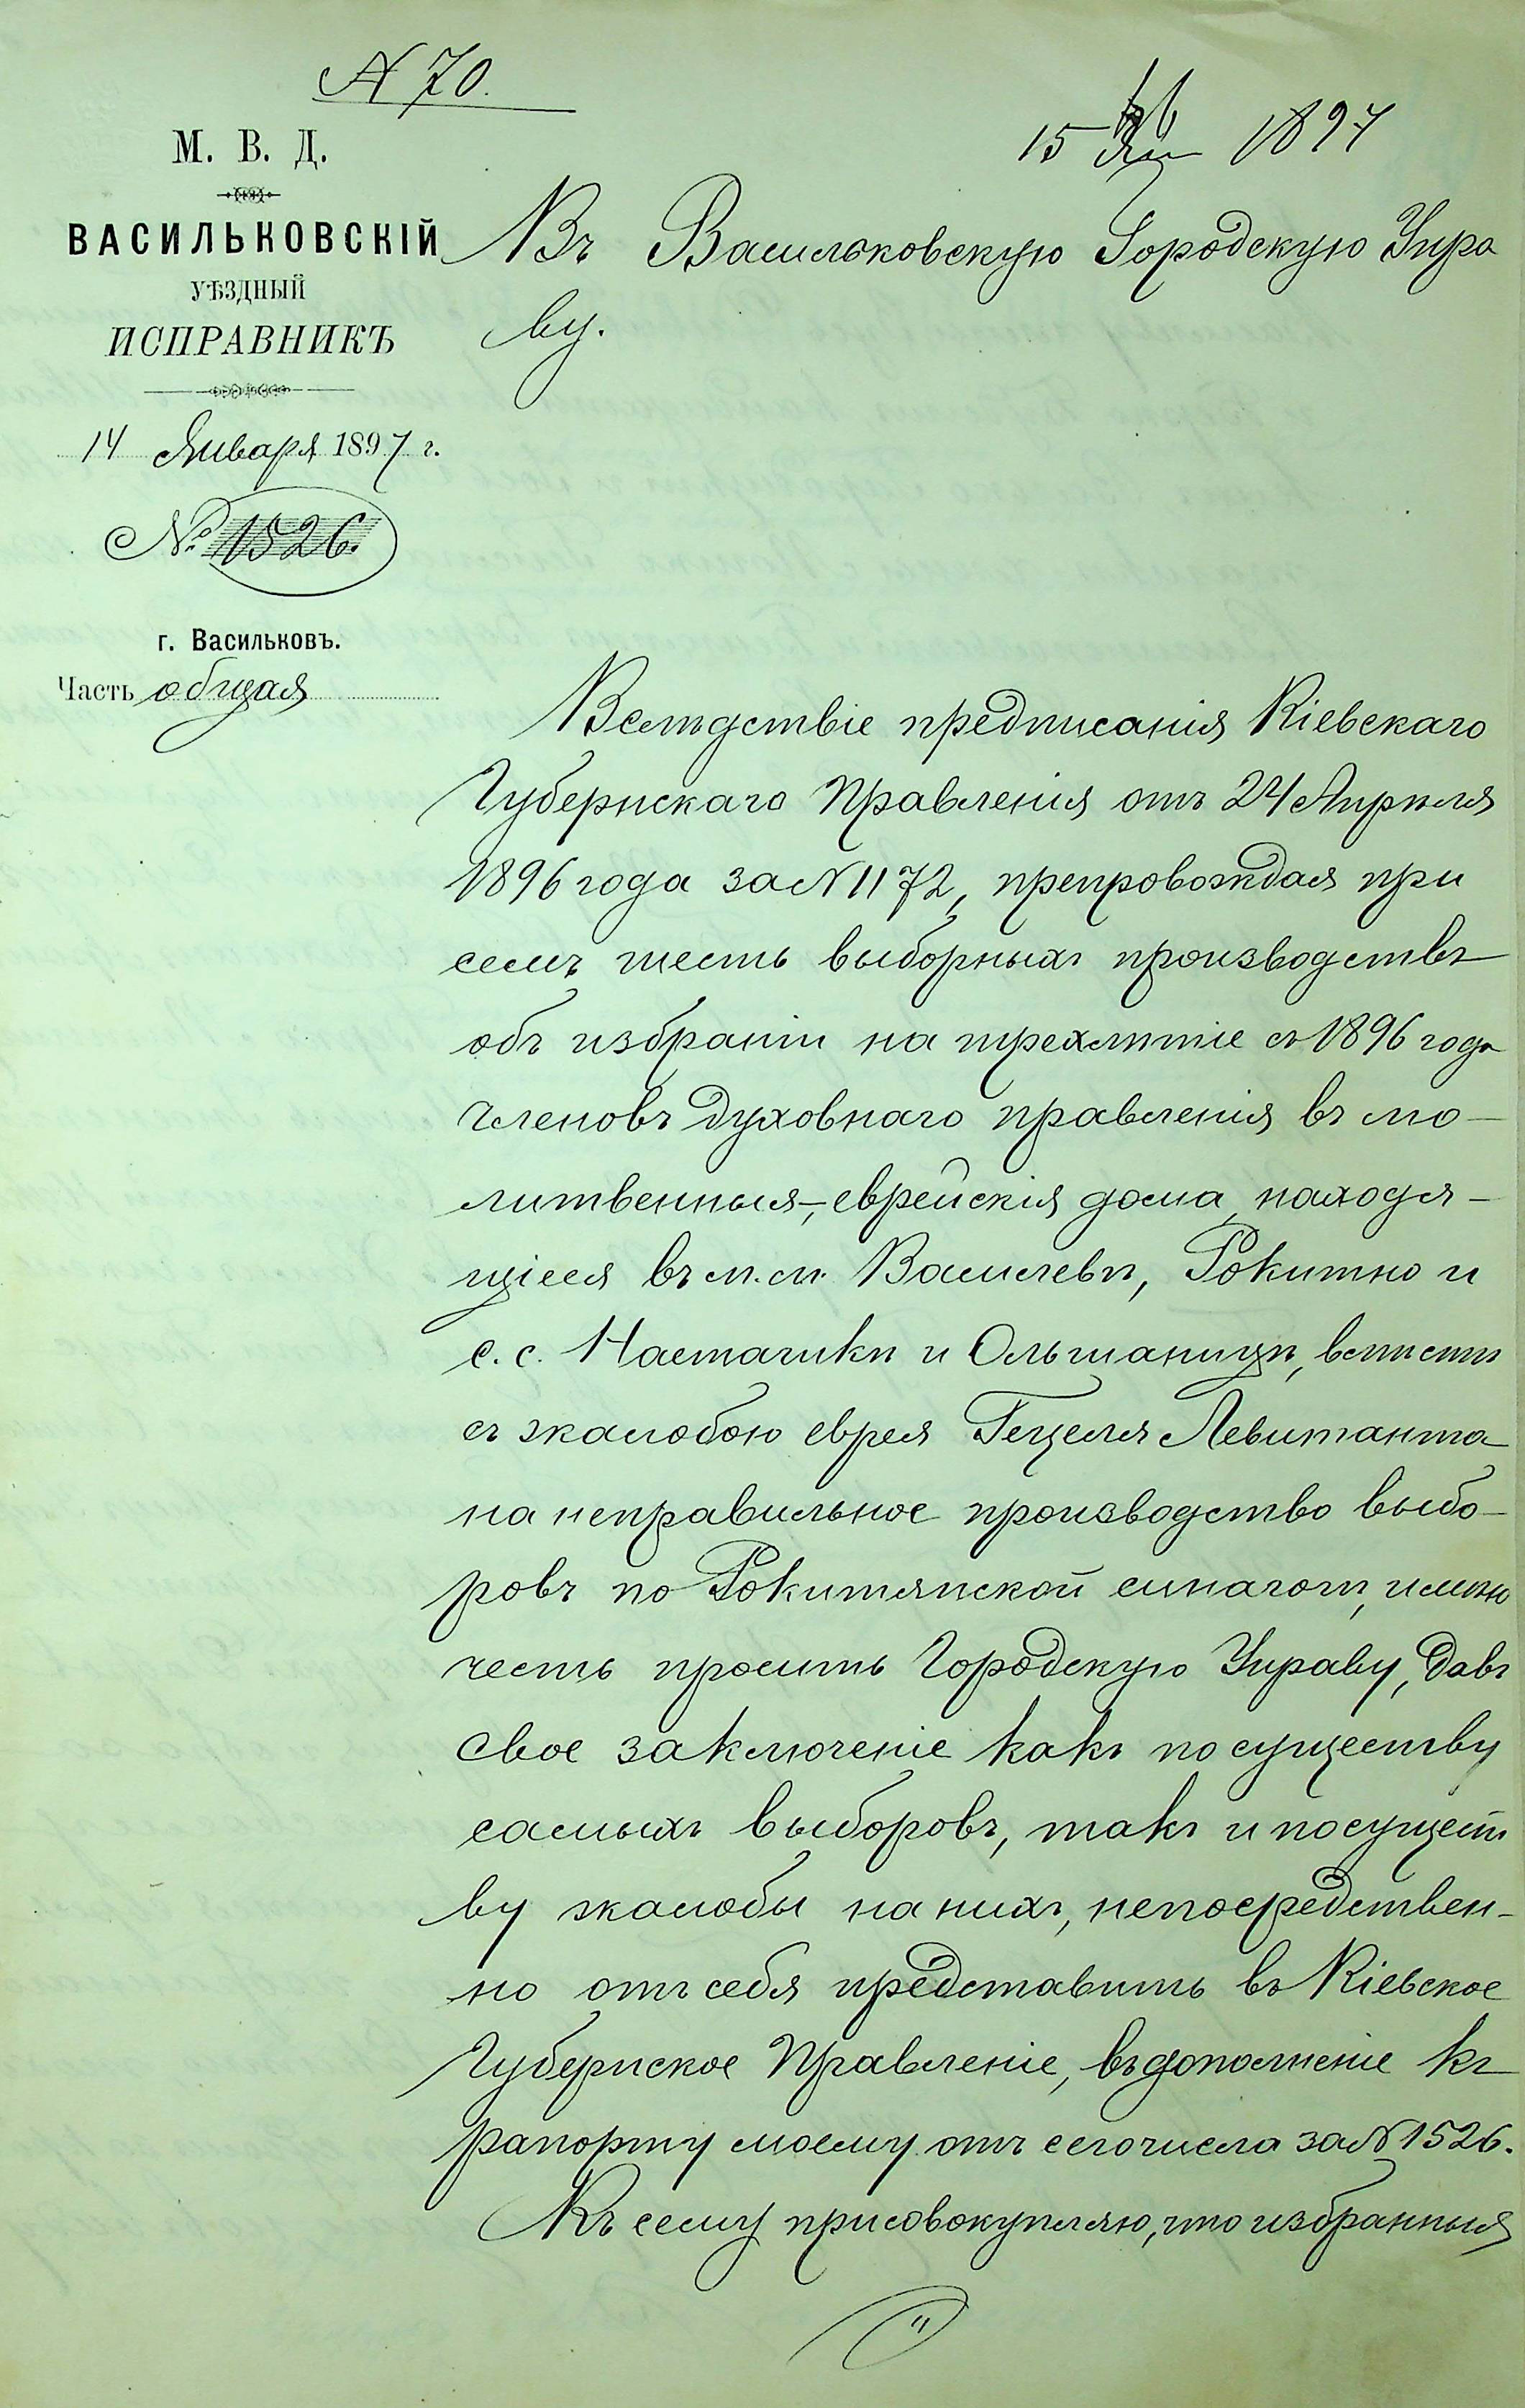 N 70.
15 Янв 1897
М. В. Д.
ВАСИЛЬКОВСКІЙ
УѢЗДНЫЙ
ИСПРАВНИКЪ
14 Января 1897 г.
№ 1526.
г. Васильковъ.
Часть общая
Въ Васильковскую Городскую Упра
ву.
Вслѣдствіе предписанія Кіевскаго
Губернскаго Правленія отъ 24 Апрѣля
1896 года за N 1172, препровождая при
семъ шесть выборныхъ производствъ
объ избраніи на трехлѣтіе съ 1896 года
членовъ духовнаго правленія въ мо-
литвенныя, еврейскія дома, находя-
щіеся въ м.м. Василевѣ, Рокитно и
с. с. Настачкѣ и Ольшаницѣ, вмѣстѣ
съ жалобою еврея Гецеля Левитанта
на неправильное производство выбо-
ровъ по Рокитянской синагогѣ, имѣю
честь просить Городскую Управу, давъ
свое заключеніе какъ по существу
самыхъ выборовъ, такъ и по сущест
ву жалобы на нихъ, непосредствен-
но отъ себя представить въ Кіевское
Губернское Правленіе, въ дополненіе къ
рапорту моему отъ сего числа за N 1526.
Къ сему присовокупляю, что избранныя